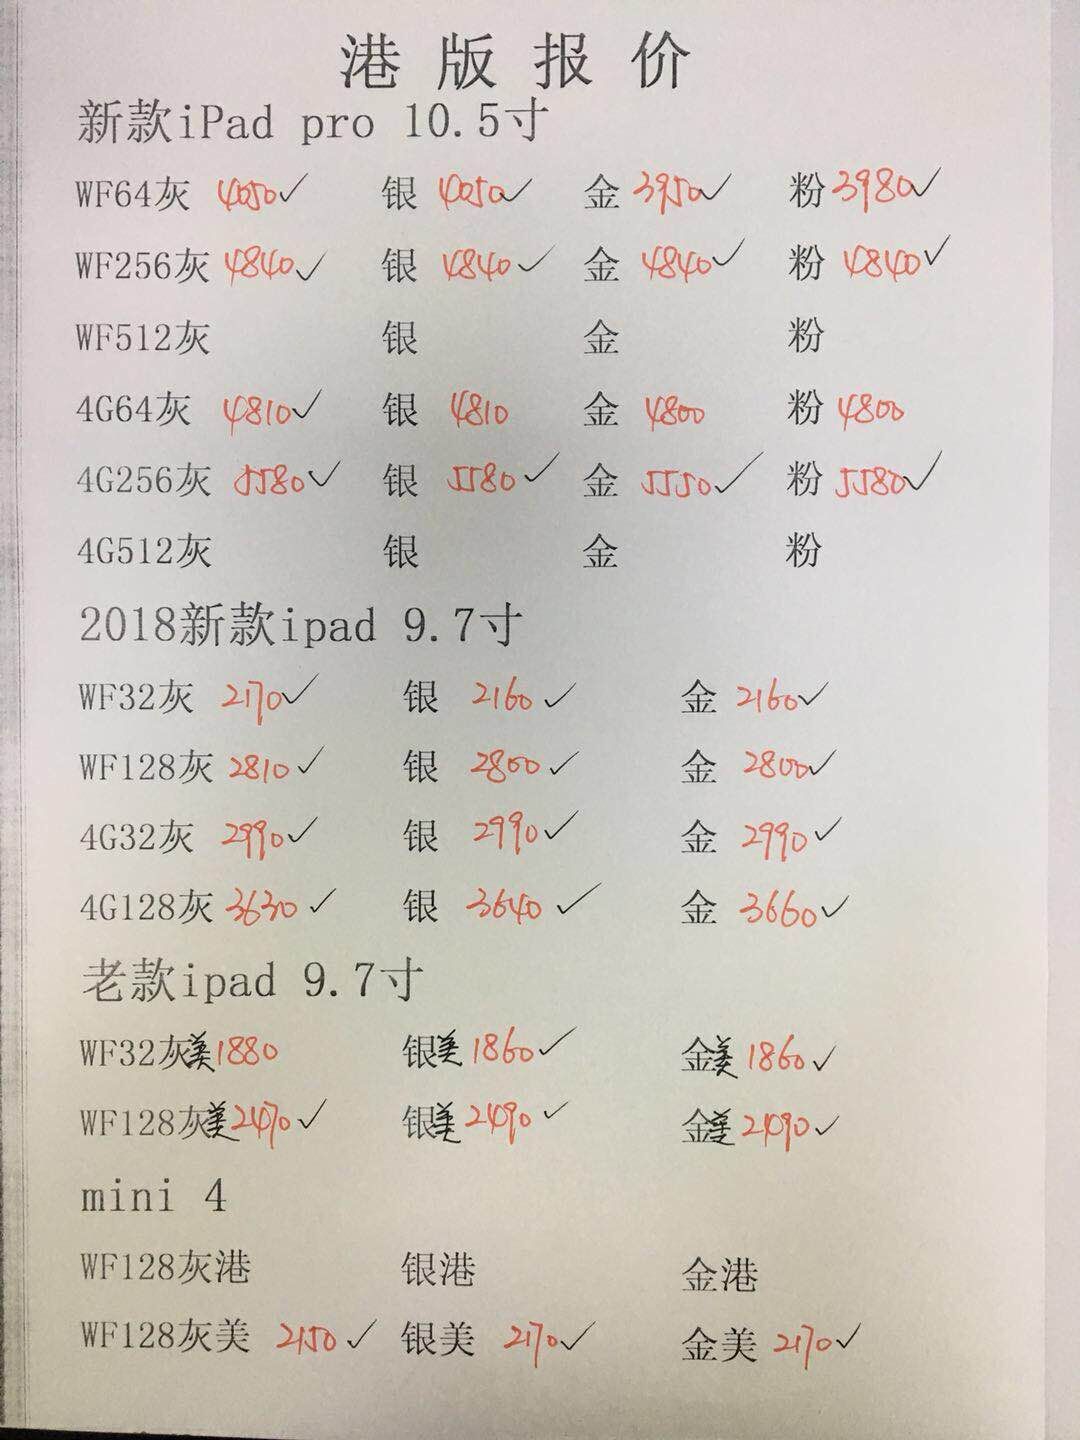 港版报价
新款iPad pro 10.5寸
WF64灰 4050✓ 银 4050✓ 金 3950✓ 粉 3980✓
WF256灰 4840✓ 银 4840✓ 金 4840✓ 粉 4840✓
WF512灰 银 金 粉
4G64灰 4810✓ 银 4810 金 4800 粉 4800
4G256灰 5580✓ 银 5580✓ 金 5550✓ 粉 5580✓
4G512灰 银 金 粉
2018新款ipad 9.7寸
WF32灰 2170✓ 银 2160✓ 金 2160✓
WF128灰 2810✓ 银 2800✓ 金 2800✓
4G32灰 2990✓ 银 2990✓ 金 2990✓
4G128灰 3630✓ 银 3640✓ 金 3660✓
老款ipad 9.7寸
WF32灰美 1880 银美 1860✓ 金美 1860✓
WF128灰美 2470✓ 银美 2490✓ 金美 2490✓
mini 4
WF128灰港 银港 金港
WF128灰美 2150✓ 银美 2170✓ 金美 2170✓